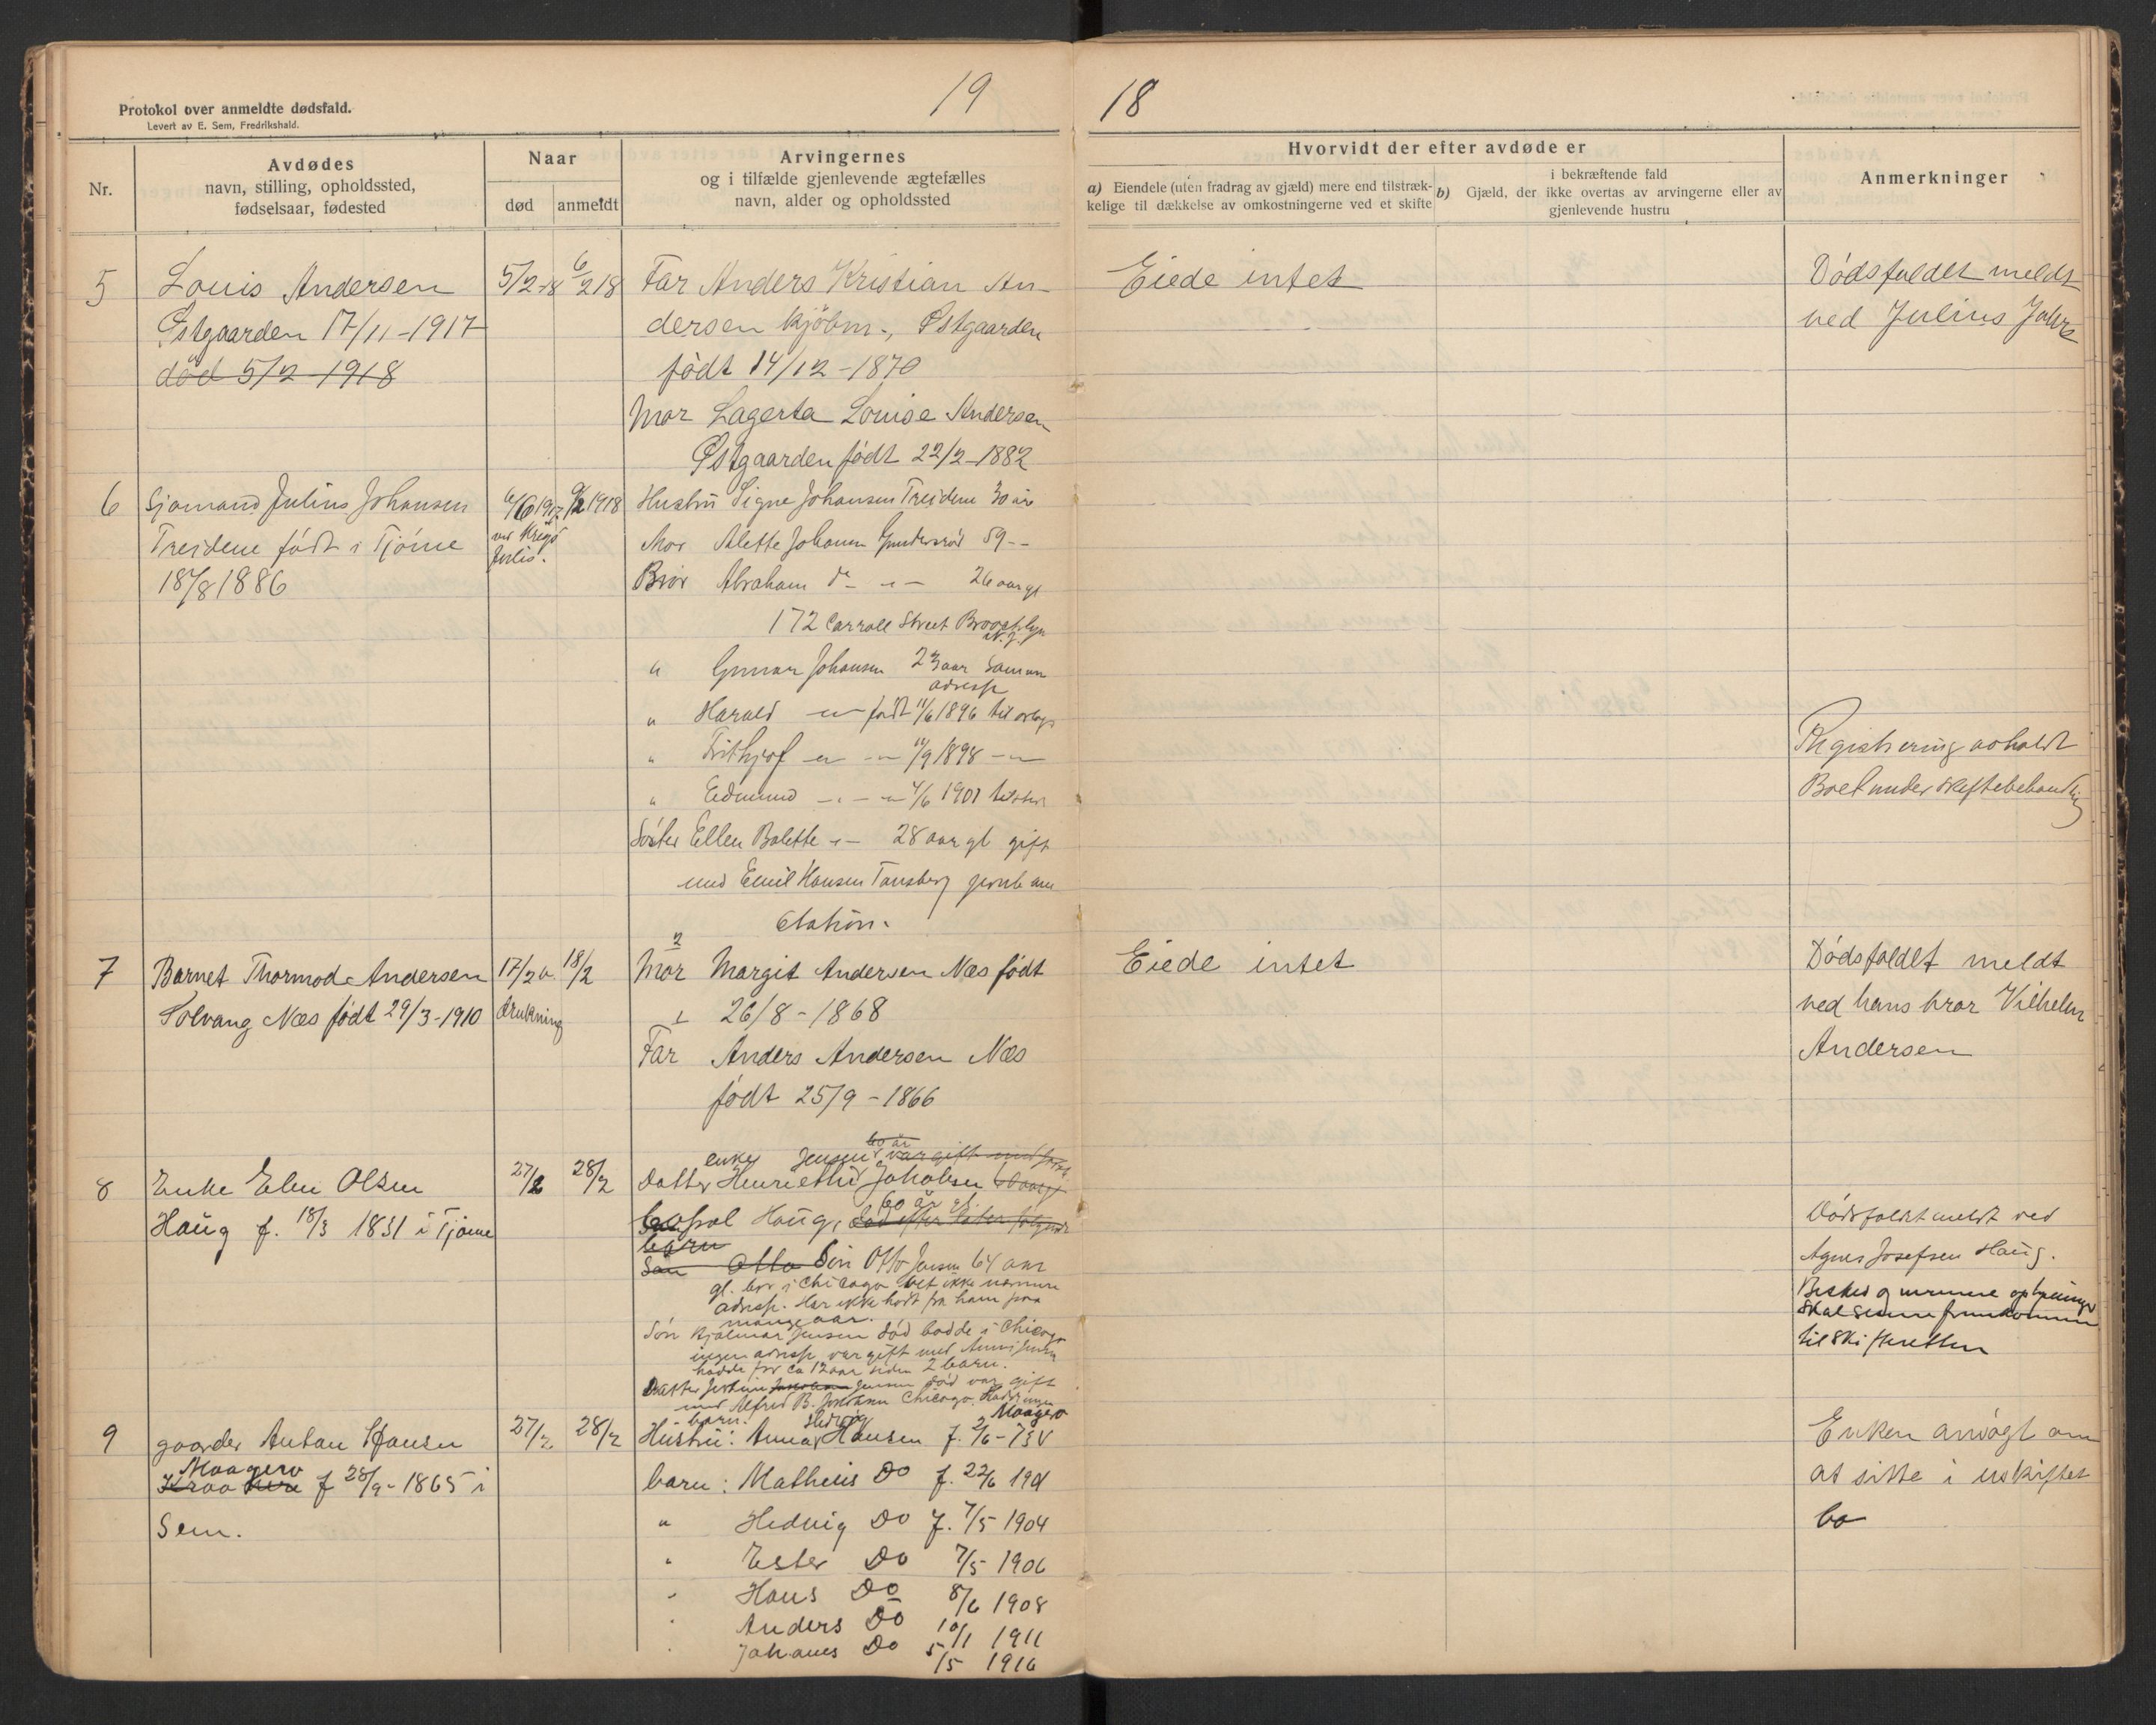 19
18
Protokol over anmeldte dødsfald.
Levert av E. Sem, Fredrikshald.
Nr.
Avdødes
navn, stilling, opholdssted,
fødselsaar, fødested
Naar
død
anmeldt
Arvingernes
og i tilfælde gjenlevende ægtefælles
navn, alder og opholdssted
Hvorvidt der efter avdøde er
a) Eiendele (uten fradrag av gjæld) mere end tilstræk-
kelige til dækkelse av omkostningerne ved et skifte
i bekræftende fald
b) Gjæld, der ikke overtas av arvingerne eller av
gjenlevende hustru
Anmerkninger
5
Louis Andersen
Østgaarden 17/11-1917
død 5/2-1918
5/2-18
6/2 18
Far Anders Kristian An-
dersen kjöbm., Østgaarden
født 14/12-1870
Mor Lagerta Louise Andersen
Østgaarden født 22/2-1882
Eiede intet
Dödsfaldet meldt
ved Julius
6
Sjømand Julius Johansen
Treidene født i Tjöme
18/8 1886
1918
ved Krigs
forlis.
Hustru Signe Johansen Treidene 30 aar
Mor Alette Johansen 59 --
Bror Abraham do - " - 26 aar gl
172 Carroll Street Brooklyn
N.J.
" Gunnar Johansen 23 aar Samme
adresse
" Harald - " - født 11/6 1896 til orlogs
" Frithjof - " - " 11/9 1898 - " -
" Edmund - " - " 4/6 1901 tilsjøs
Søster Ellen Bolette - " - 28 aar gl gift
med Emil Hansen Tønsberg
Station.
Registrering avholdt
Boet under skiftebehandling
7
Barnet Thormod Andersen
Solvang Næs født 29/3-1910
17/2 v.
drukning
18/2
2
Mor Margit Andersen Næs født
1 26/8-1868
Far Anders Andersen Næs
født 25/9-1866
Eiede intet
Dödsfaldet meldt
ved hans bror Vilhelm
Andersen
8
Enke Elen Olsen
Haug f. 18/3 1831 i Tjøme
27/2
28/2
60 år
enke Jensen var gift med
Datter Henriette Jakobsen
60 år gl.
bopæl Haug,
barn
Søn Otto Søn Otto Jensen 64 aar
gl. bor i Chicago vet ikke nærmere
adresse. Har ikke hørt fra ham paa
mange aar.
Søn Hjalmar Jensen død bodde i Chicago
ingen adresse var gift med
hadde for ca 12 aar siden 2 barn.
Datter Jensen død var gift
med Alfred B. Chicago. Hadde ingen
barn.
Dödsfaldet meldt ved
Agnes Josefsen Haug.
Besked og nærmere oplysninger
skal senere fremkomme
til Skifteretten
9
gaardbr Anton Hansen
Maagerø
f 28/9-1865 i
Sem.
27/2
28/2
Hedvig Maagerø
Hustru: Anna Hansen f. 2/6-
barn: Matheus Do f. 22/6
" Hedvig Do f. 7/5 1904
" Ester Do 7/5 1906
" Hans Do 8/6 1908
" Anders Do 10/1 1911
" Johanes Do 5/5 1916
Enken ansøgt om
at sitte i uskiftet
bo